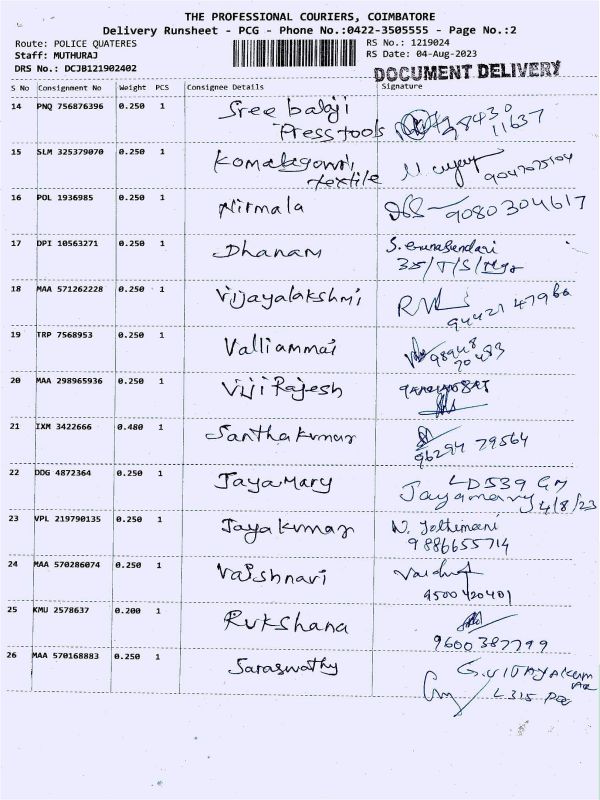 THE PROFESSIONAL COURIERS, COIMBATORE
Delivery Runsheet - PCG - Phone No.:0422-3505555 - Page No.:2
Route: POLICE QUATERES RS No.: 1219024
Staff: MUTHURAJ RS Date: 04-Aug-2023
DRS No.: DCJB121902402 DOCUMENT DELIVERY
S No Consignment No Weight PCS Consignee Details Signature
14 PNQ 756876396 0.250 1 Sree balaji
Press tools 98430
11637
15 SLM 325379070 0.250 1
textile
16 POL 1936985 0.250 1 Nirmala 9080304617
17 DPI 10563271 0.250 1 Dhanam S. Gunasundari
35/T/S/
18 MAA 571262228 0.250 1 Vijayalakshmi
94421 47966
19 TRP 7568953 0.250 1 Valliammai 98948
70483
20 MAA 298965936 0.250 1 Viji Rajesh
21 IXM 3422666 0.480 1 Santhakumar
96294 79564
22 DDG 4872364 0.250 1 Jayamary LD539
Jayamary 4/8/23
23 VPL 219790135 0.250 1 Jayakumar N. Jothimani
9886655714
24 MAA 570286074 0.250 1 Vaishnavi
9500420401
25 KMU 2578637 0.200 1 Rukshana
9600387799
26 MAA 570168883 0.250 1 Saraswathy
L 315